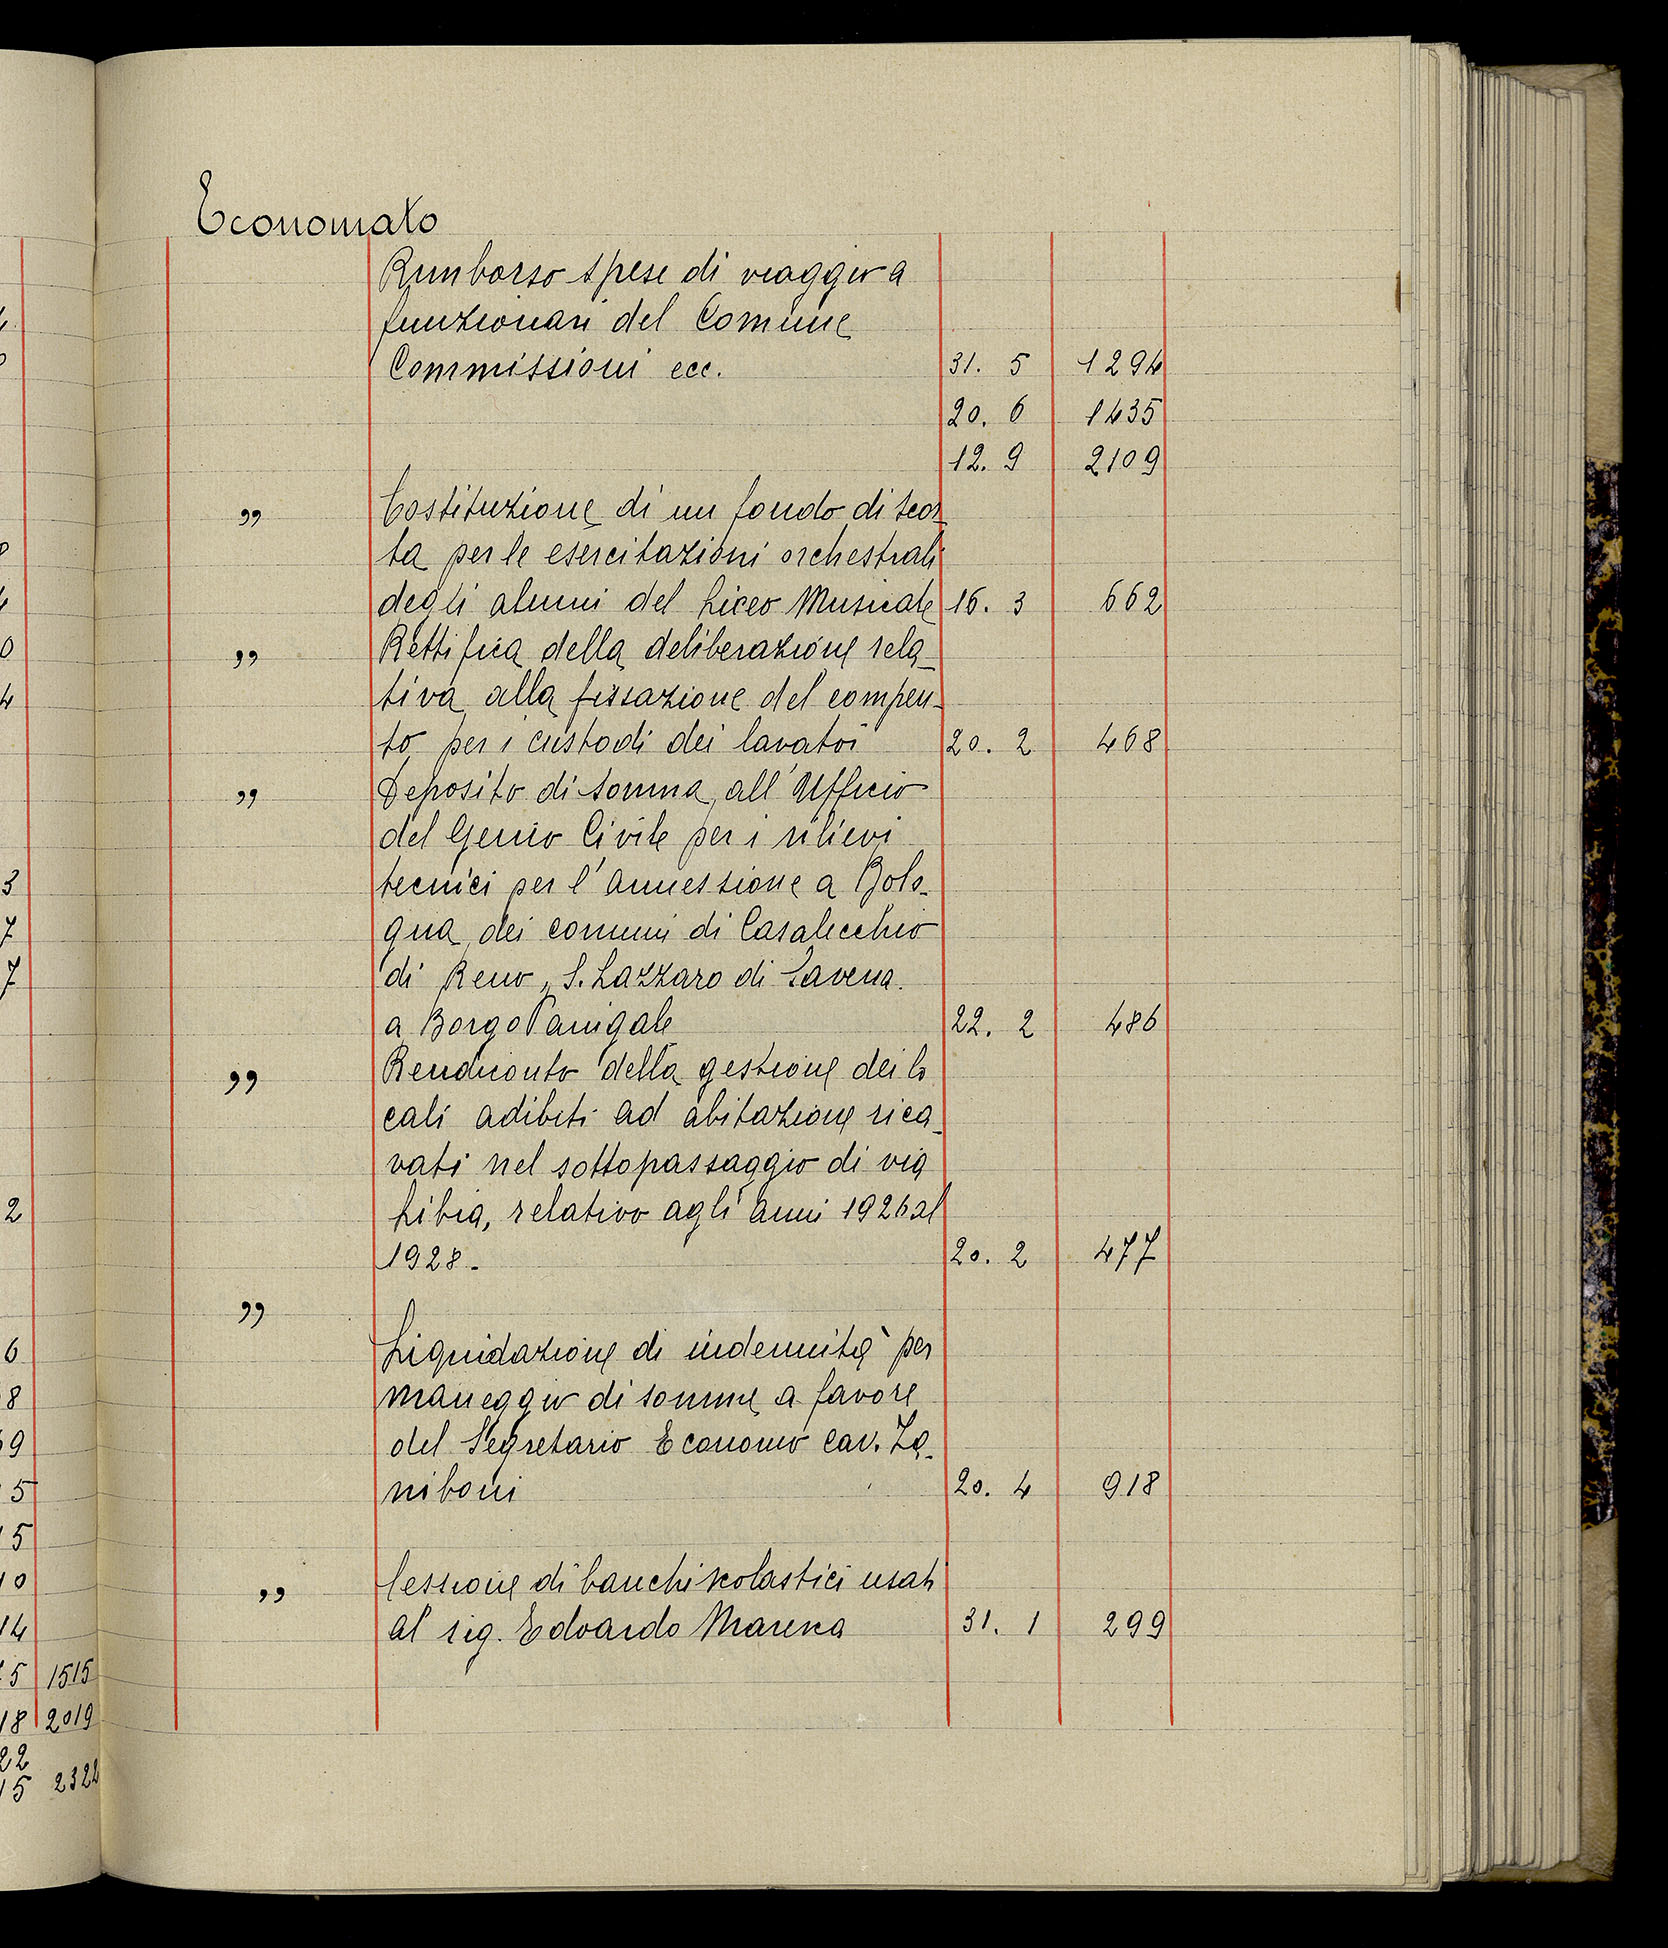 Economato
Rimborso spese di viaggio a
funzionari del Comune
Commissioni ecc. 31. 5 1294
20. 6 1435
12. 9 2109
„ Costituzione di un fondo di scor-
ta per le esercitazioni orchestrali
degli alunni del Liceo Musicale 16. 3 662
„ Rettifica della deliberazione rela-
tiva alla fissazione del compen-
so per i custodi dei lavatoi 20. 2 468
„ Deposito di somma all'Ufficio
del Genio Civile per i rilievi
tecnici per l'annessione a Bolo-
gna dei comuni di Casalecchio
di Reno, S. Lazzaro di Savena.
a Borgo Panigale 22. 2 486
„ Rendiconto della gestione dei lo
cali adibiti ad abitazione rica-
vati nel sottopassaggio di via
Libia, relativo agli anni 1926 al
1928. 20. 2 477
„
Liquidazione di indennità per
maneggio di somme a favore
del Segretario Economo cav. Za-
niboni 20. 4 918
„ Cessione di banchi scolastici usati
al sig. Edoardo 31. 1 299
3
7
7
2
6
8
9
5
5
10
14
5 1515
18 2019
22
15 2322